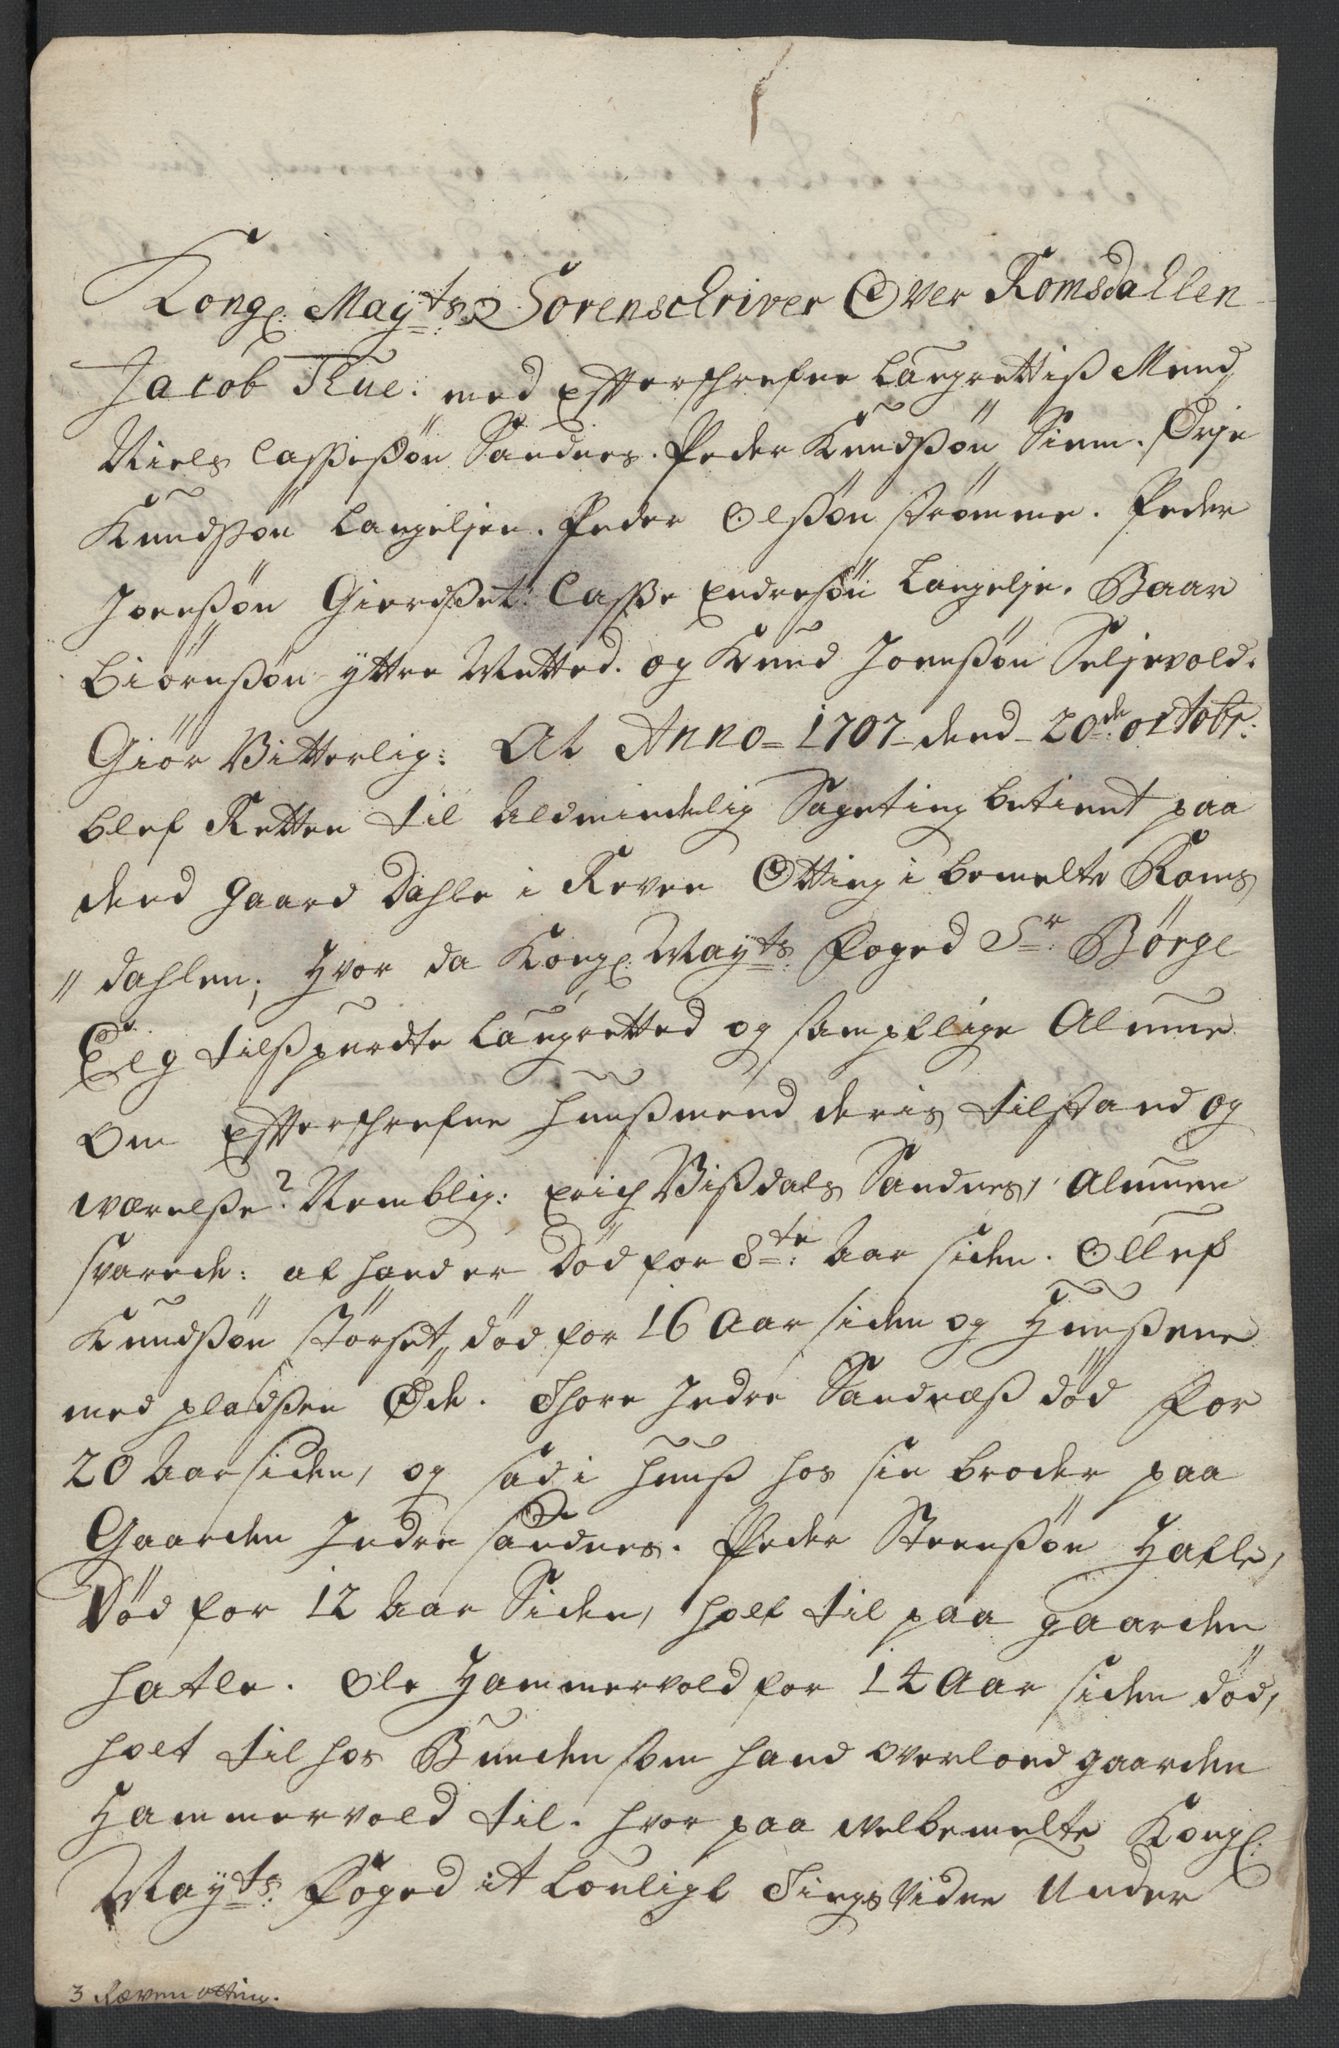 Kongl: May:ts Sorenschriver Over Romsdahlen
Jacob Thue: med Efterschrefne Laugrettis Mend,
Niels Lassesøn Sandnes. Peder Knudsøn Siem. Ørje
Knudsøn Langeljen. Peder Olsøn Strømme. Peder
Joensøn Gierdset. Lasse Endresøn Langelje. Baar
Biørnsøn yttre Metted. og Knud Joensøn Seljevold.
Giør Vitterlig: At Anno = 1707 dend 20de octobr:
blef Retten til Aldmindelig Sageting betient paa
dend gaard Dahle i Reven Otting i bemelte Roms
"dahlen; hvor da Kongl: May:ts Foged Sr: Børge
Elg tilspurdte Laugretted og samptlige Almue
Om Efterschrefne huusmænd deris tilstand og
værelse? Nemblig: Erich Visdals Sandnes, Almuen
svarede: at hand er død for 8te: Aar siden. Ollef
Knudsøn Størset, død for 16 Aar siden og Huusene
med pladsen Øde. Thore Indre Sandnæs død for
20 Aar siden, og sad i huus hos sin broder paa
Gaarden Indre Sandnes. Peder Steensøn Hatle,
Død for 12 Aar Siden, holt til paa gaarden
hatle. Ole Hammervold for 14 Aar siden død,
holt til hos Bunden som hand overloed gaarden
Hammervold til. hvor paa velbemelte Kongl:
May:ts Foged it Louligt Tings Vidne Under
3 Ræven otting.